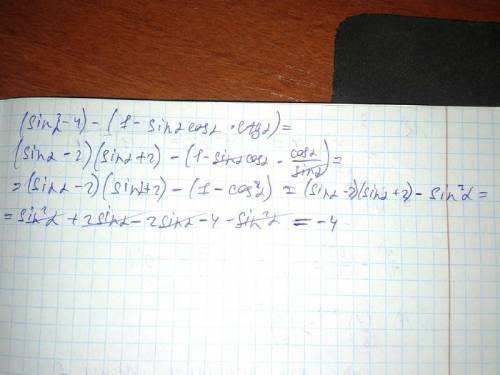 (sin²α-4) - (1 - sinα cosα · ctgα) =
(sinα - 2)(sinα + 2) - (1 - sinα cosα · cosα/sinα) =
= (sinα - 2)(sinα + 2) - (1 - cos²α) = (sinα - 2)(sinα + 2) - sin²α =
= sin²α + 2sinα - 2sinα - 4 - sin²α = -4